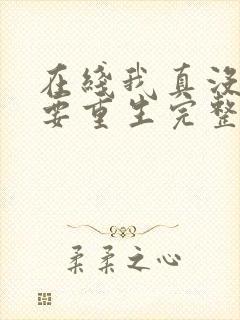 在綫我真没
要重生完整
柔柔之心